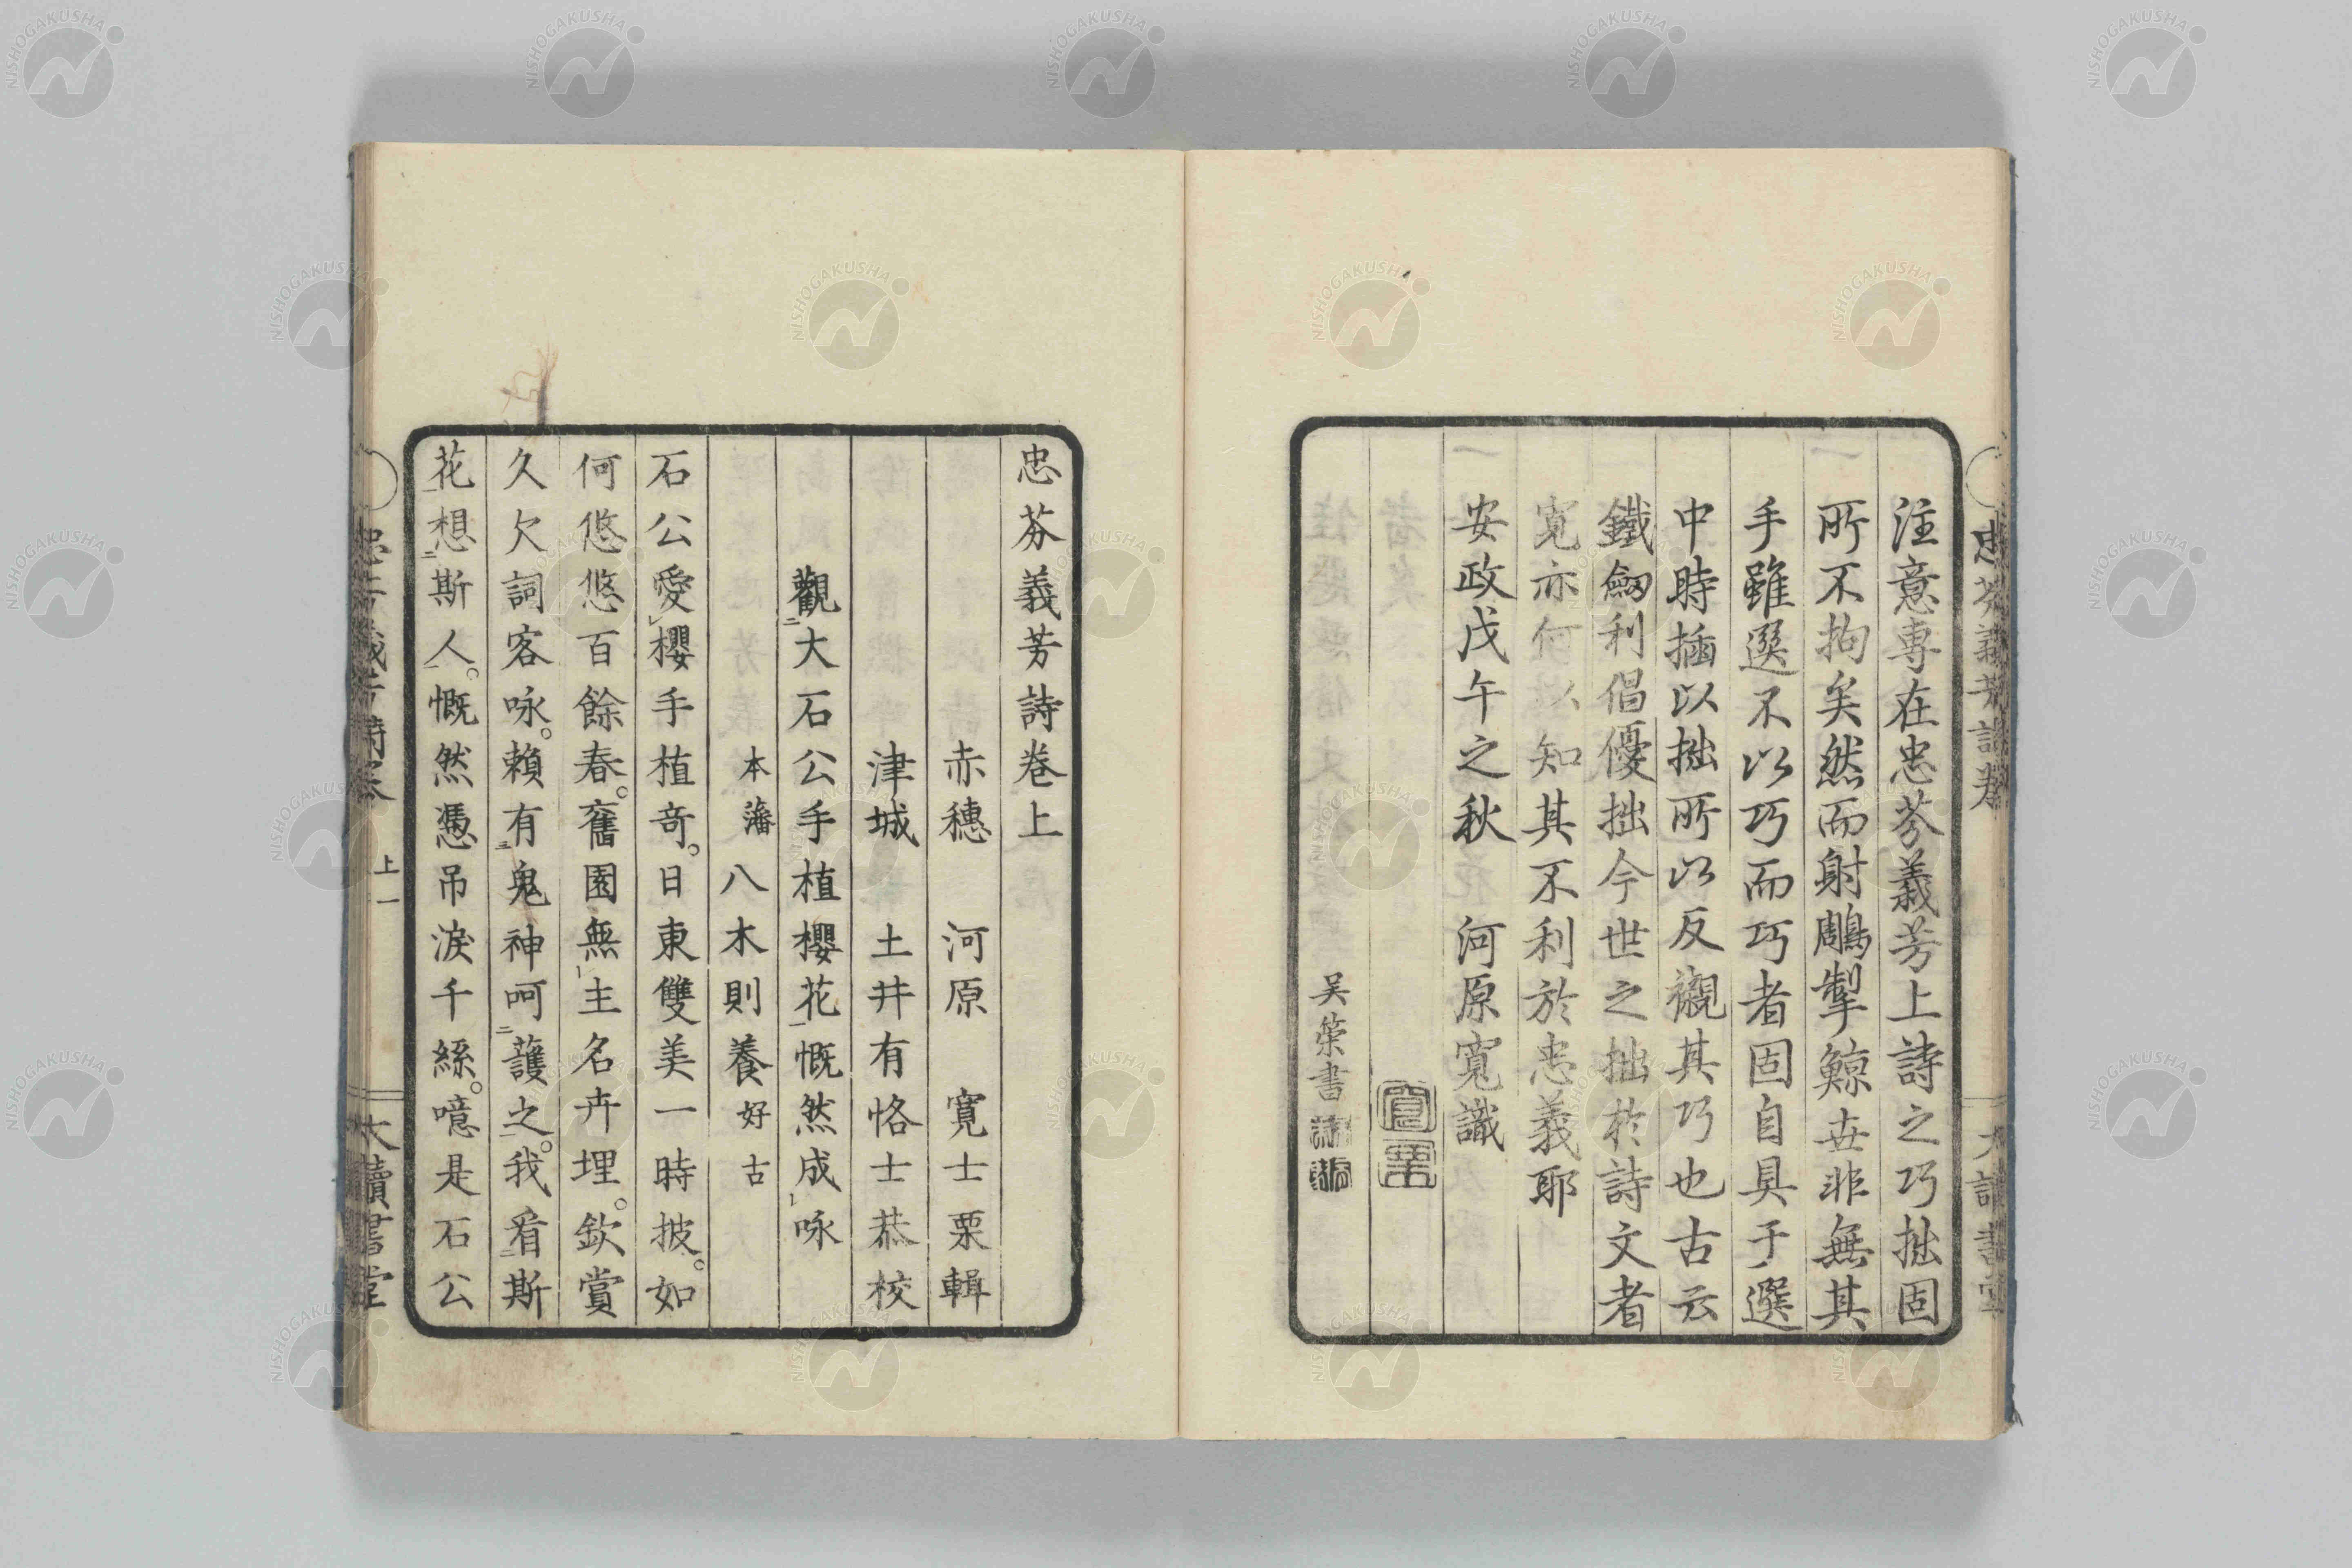 注意專在忠芬義芳上詩之巧拙固
所不拘矣然而射鵰掣鯨壺非無其
手雖選不以巧而巧者固自具于選
中時插以拙所以反襯其巧也古云
鐵劒利倡優拙今世之拙於詩文者
寛亦何以知其不利於忠義耶
安政戊午之秋 河原寬識
吴榮書
忠芬義芳詩卷
忠芬義芳詩卷上
赤穗 河原 寬士栗輯
津城 土井有恪士恭校
觀大石公手植櫻花慨然成咏
本藩 八木則養好古
石公愛櫻手植奇。日東雙美一時披。如
何悠悠百餘春。舊園無主名卉埋。欽賞
久欠詞客咏。賴有鬼神呵護之。我看斯
花想斯人。慨然憑吊淚千絲。噫是石公
忠芬義芳詩卷 上 一 大讀書堂
NISHOGAKUSHA